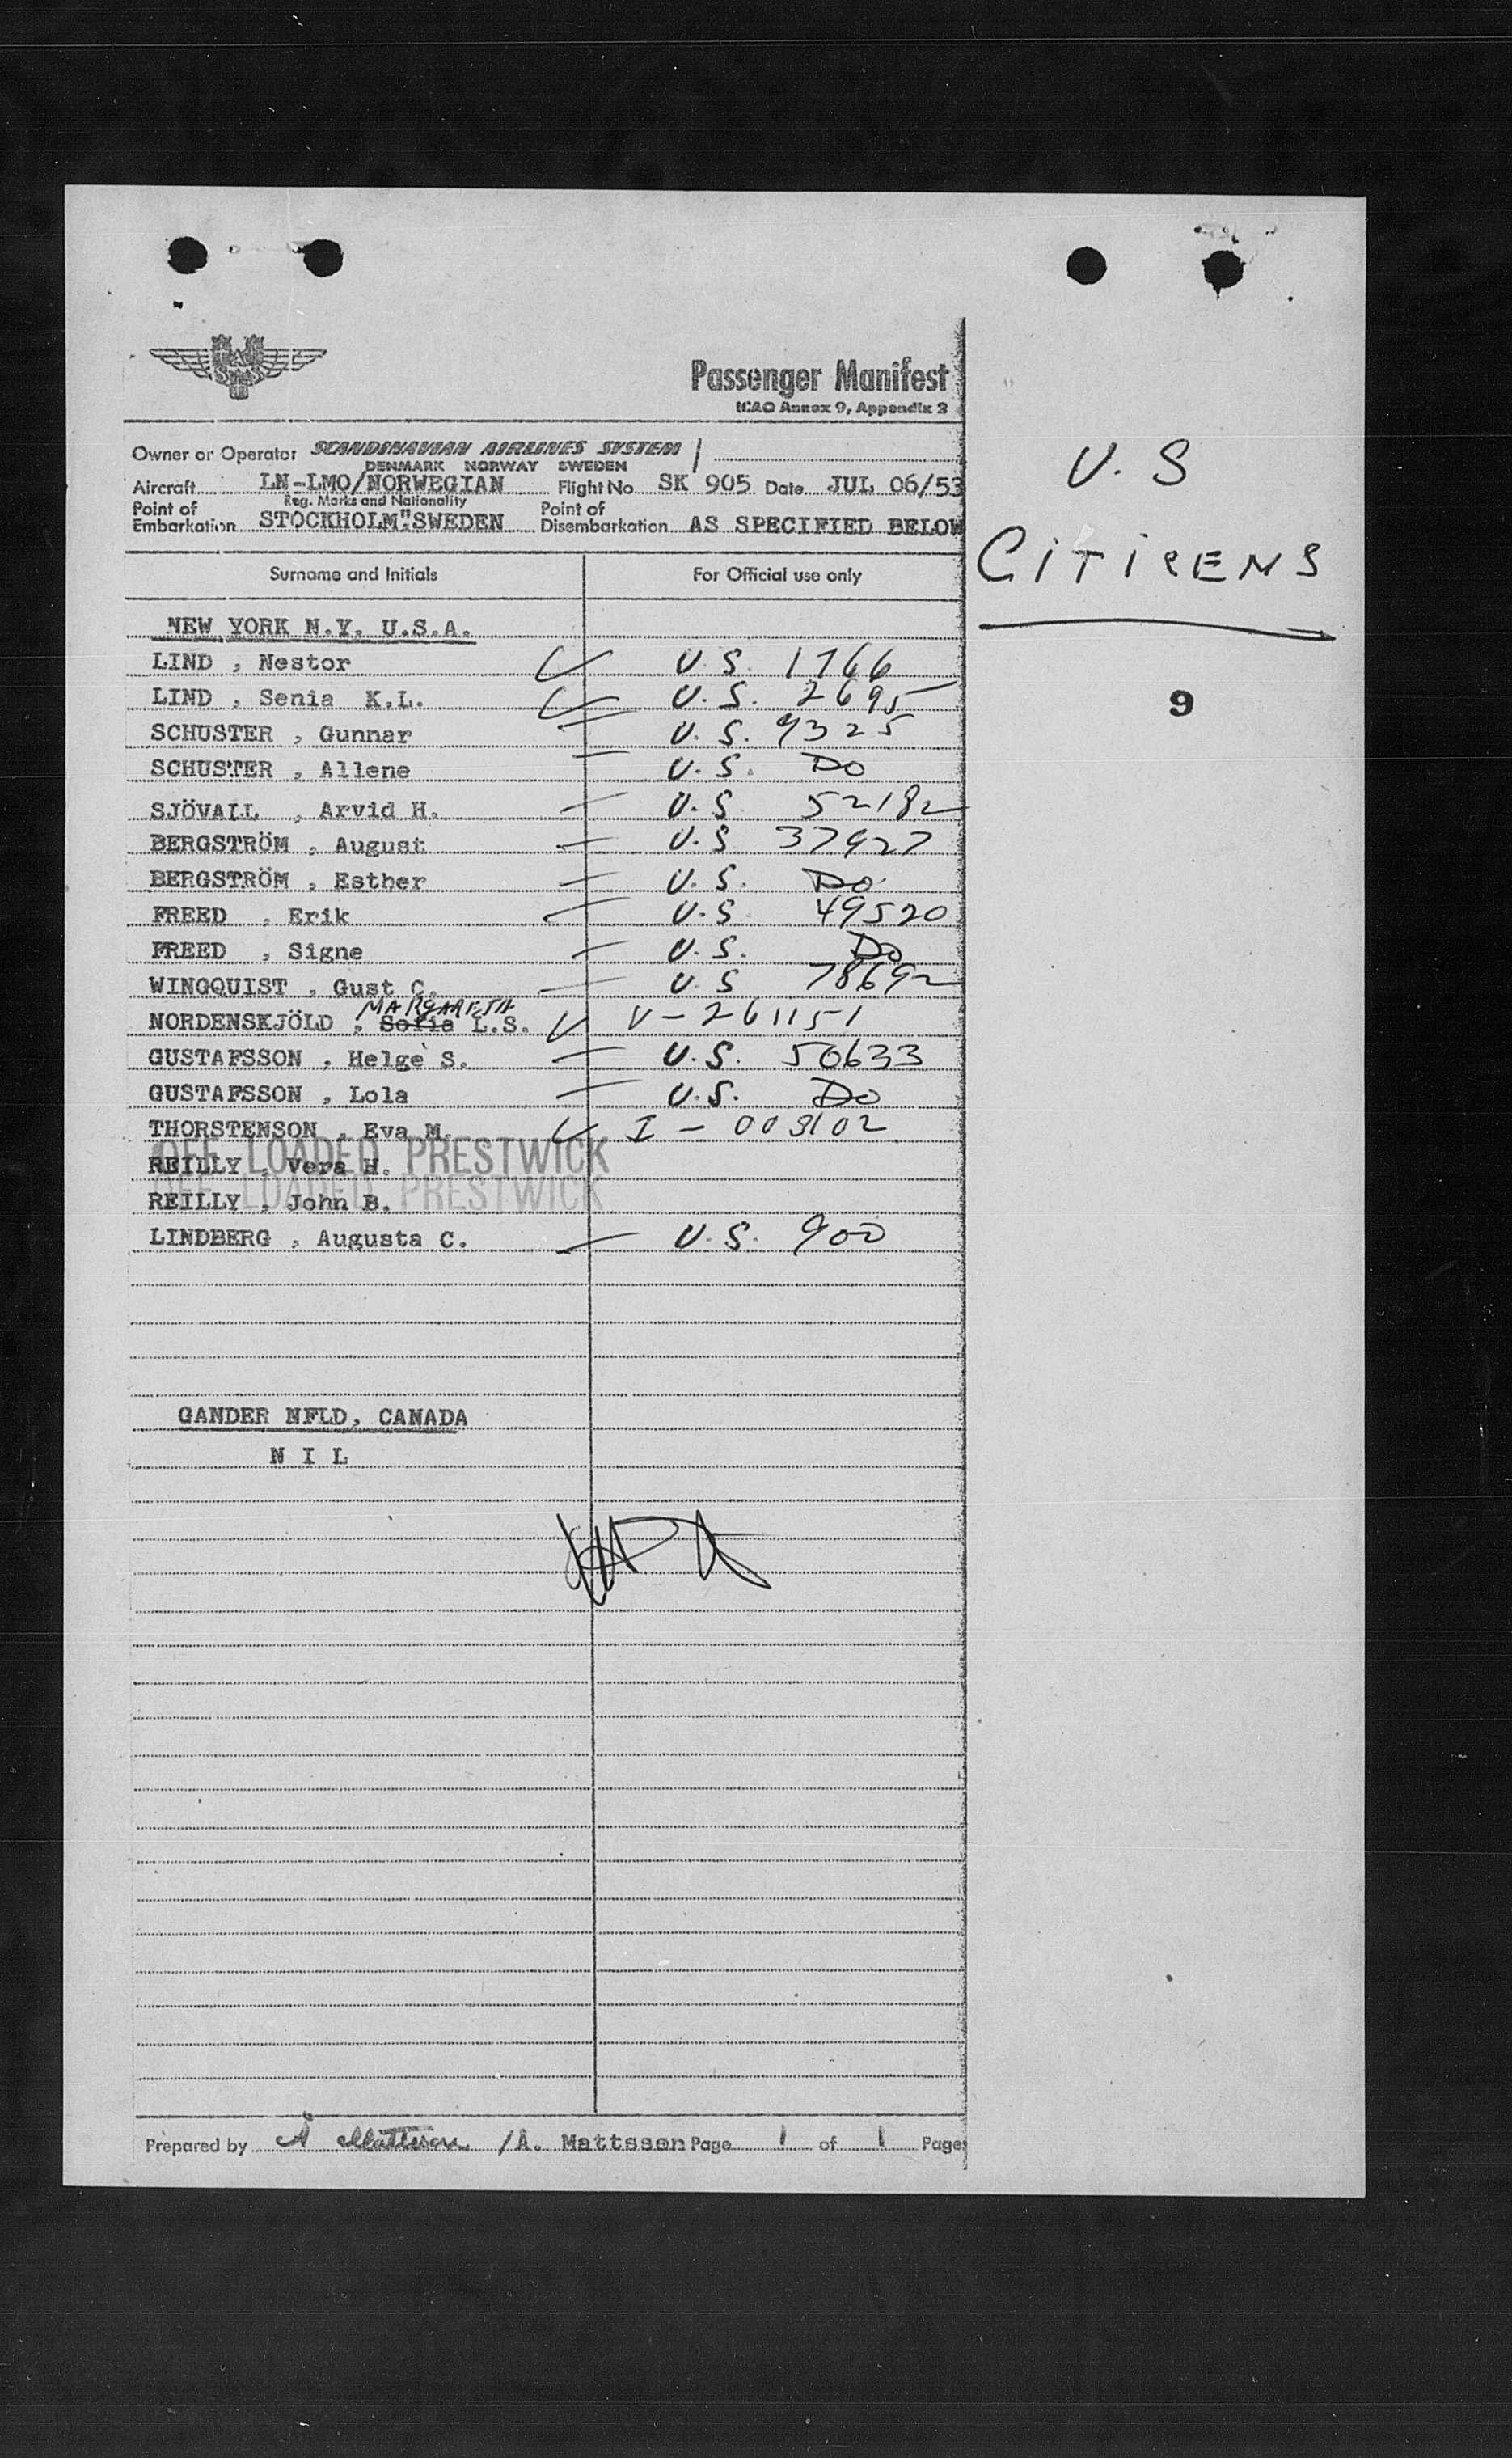 Passenger Manifest
ICAO Annex 9, Appendix 3
Owner or Operator SCANDINAVIAN AIRLINES SYSTEM
DENMARK NORWAY SWEDEN
Aircraft LN-LMO/NORWEGIAN Flight No SK 905 Date JUL 06/53
Reg. Marks and Nationality
Point of Embarkation STOCKHOLM"SWEDEN Point of Disembarkation AS SPECIFIED BELOW
U.S
CITIZENS
9
Surname and Initials For Official use only
NEW YORK N.Y. U.S.A.
LIND , Nestor U.S. 1766
LIND , Senia K.L. U.S. 2695
SCHUSTER , Gunnar U.S. 9325
SCHUSTER , Allene U.S. Do
SJÖVALL , Arvid H. U.S 52182
BERGSTRÖM , August U.S 37927
BERGSTRÖM , Esther U.S. Do
FREED , Erik U.S. 49520
FREED , Signe U.S. Do
WINGQUIST , Gust C. U.S 78692
MARGARETA
NORDENSKJÖLD , Sofia L.S. V-261151
GUSTAFSSON , Helge S. U.S. 50633
GUSTAFSSON , Lola U.S. Do
THORSTENSON , Eva M. I - 003102
OFF LOADED PRESTWICK
REILLY , Vera H.
OFF LOADED PRESTWICK
REILLY , John B.
LINDBERG , Augusta C. U.S. 900
GANDER NFLD, CANADA
N I L
Prepared by A Mattsson /A. Mattsson Page 1 of 1 Pages